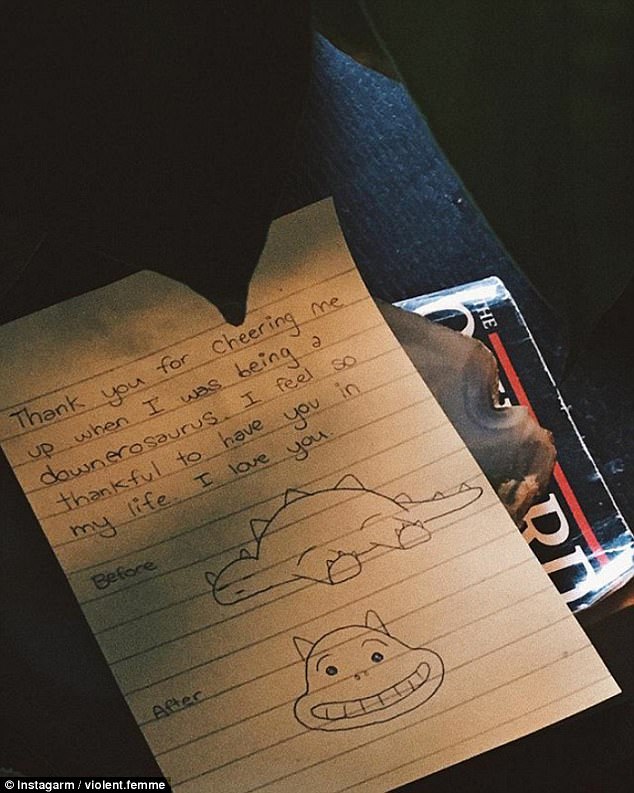 Thank you for cheering me
up when I was being a
downerosaurus. I feel so
thankful to have you in
my life. I love you.
Before
After
THE
© Instagarm / violent.femme